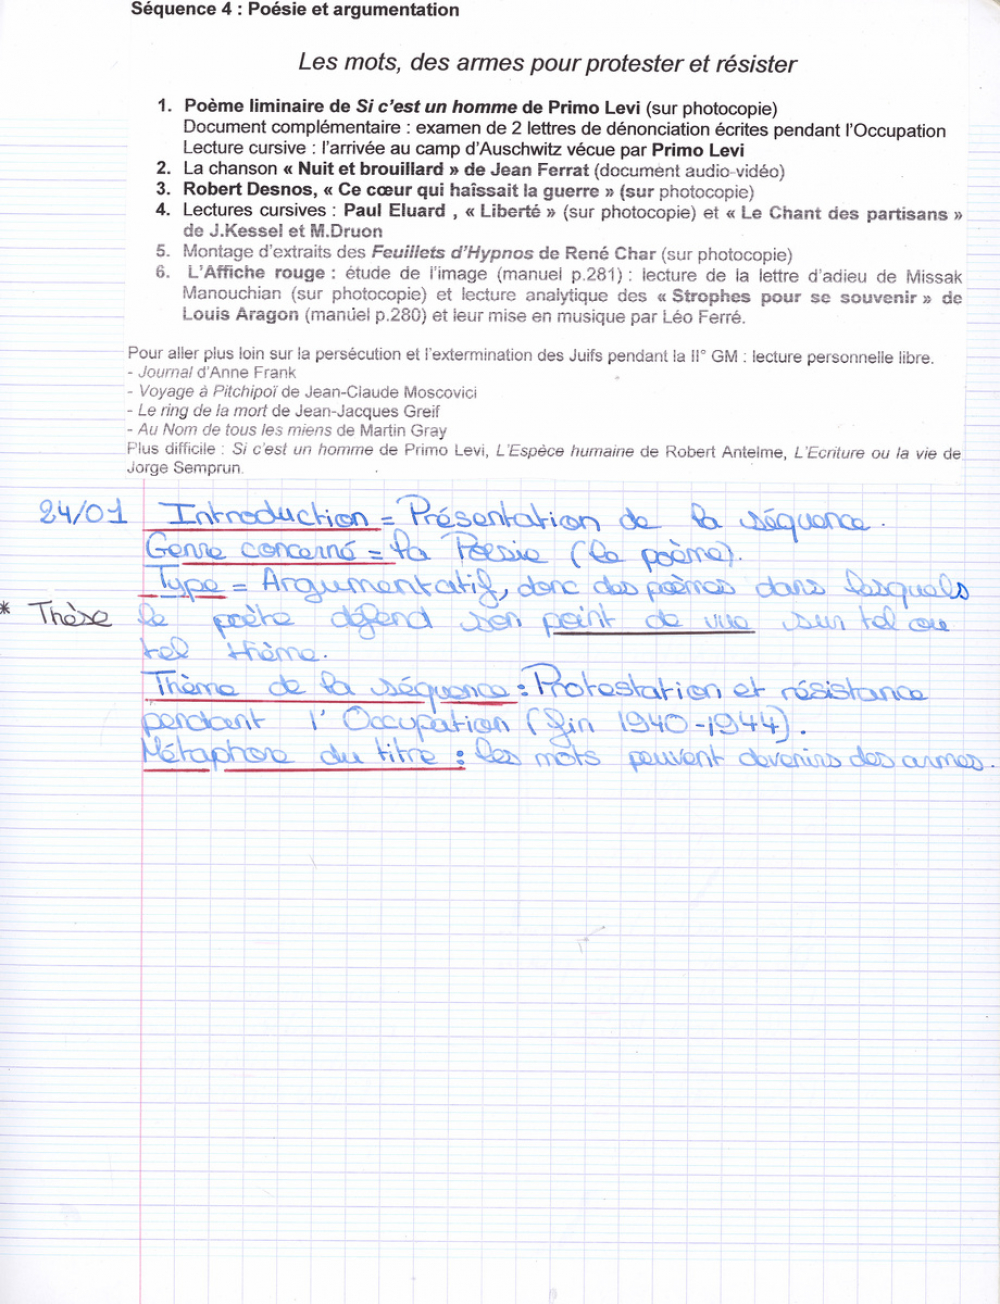 Séquence 4 : Poésie et argumentation
Les mots, des armes pour protester et résister
1. Poème liminaire de Si c'est un homme de Primo Levi (sur photocopie)
Document complémentaire : examen de 2 lettres de dénonciation écrites pendant l'Occupation
Lecture cursive : l'arrivée au camp d'Auschwitz vécue par Primo Levi
2. La chanson « Nuit et brouillard » de Jean Ferrat (document audio-vidéo)
3. Robert Desnos, « Ce cœur qui haïssait la guerre » (sur photocopie)
4. Lectures cursives : Paul Eluard , « Liberté » (sur photocopie) et « Le Chant des partisans »
de J.Kessel et M.Druon
5. Montage d'extraits des Feuillets d'Hypnos de René Char (sur photocopie)
6. L'Affiche rouge : étude de l'image (manuel p.281) : lecture de la lettre d'adieu de Missak
Manouchian (sur photocopie) et lecture analytique des « Strophes pour se souvenir » de
Louis Aragon (manuel p.280) et leur mise en musique par Léo Ferré.
Pour aller plus loin sur la persécution et l'extermination des Juifs pendant la II° GM : lecture personnelle libre.
- Journal d'Anne Frank
- Voyage à Pitchipoï de Jean-Claude Moscovici
- Le ring de la mort de Jean-Jacques Greif
- Au Nom de tous les miens de Martin Gray
Plus difficile : Si c'est un homme de Primo Levi, L'Espèce humaine de Robert Antelme, L'Ecriture ou la vie de
Jorge Semprun.
24/01 Introduction = Présentation de la séquence.
Genre concerné = la Poésie (le poème).
Type = Argumentatif, donc des poèmes dans lesquels
* Thèse le poète défend son point de vue sur tel ou
tel thème.
Thème de la séquence : Protestation et résistance
pendant l'Occupation (fin 1940-1944).
Métaphore du titre : les mots peuvent devenirs des armes.